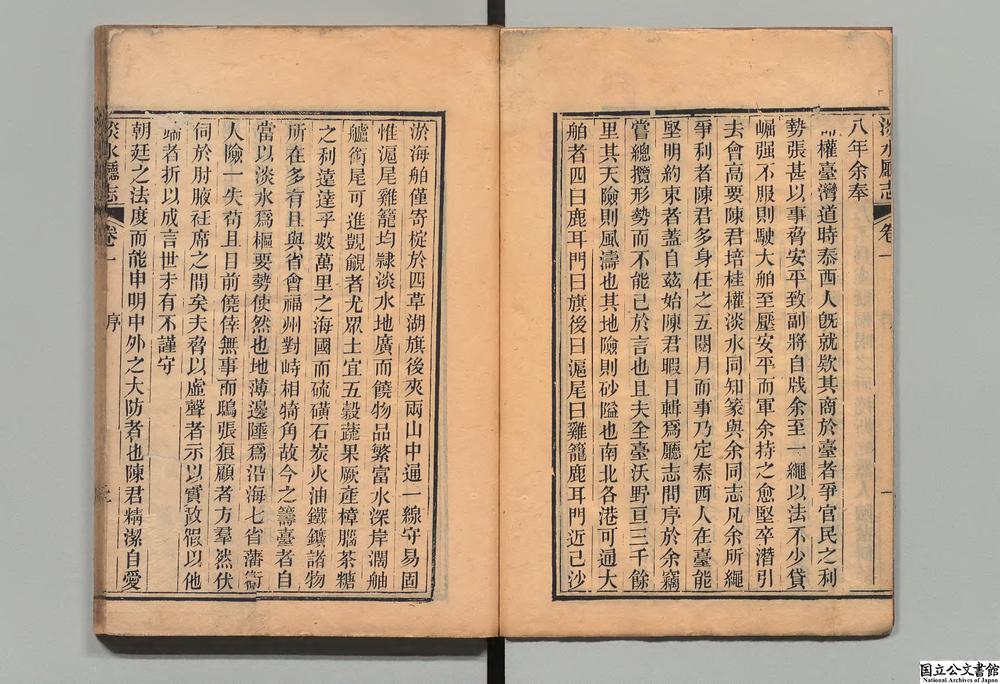 淡水廳志 卷一 一
八年余奉
命權臺灣道時泰西人旣就欵其商於臺者爭官民之利
勢張甚以事脅安平致副將自戕余至一繩以法不少貸
崛强不服則駛大舶至壓安平而軍余持之愈堅卒潛引
去會高要陳君培桂權淡水同知篆與余同志凡余所繩
爭利者陳君多身任之五閱月而事乃定泰西人在臺能
堅明約束者蓋自茲始陳君暇日輯爲廳志問序於余竊
嘗總攬形勢而不能已於言也且夫全臺沃野亘三千餘
里其天險則風濤也其地險則砂隘也南北各港可通大
舶者四曰鹿耳門曰旗後曰滬尾曰雞籠鹿耳門近己沙
淤海舶僅寄椗於四草湖旗後夾兩山中通一線守易固
惟滬尾雞籠均隸淡水地廣而饒物品繁富水深岸濶舳
艫銜尾可進覬覦者尤眾土宜五穀蔬果厥產樟腦茶糖
之利遠達乎數萬里之海國而硫磺石炭火油鐵鑛諸物
所在多有且與省會福州對峙相犄角故今之籌臺者自
當以淡水爲樞要勢使然也地薄邊陲爲沿海七省藩衞
人險一失苟且目前僥倖無事而鴟張狼顧者方羣然伏
伺於肘腋衽席之間矣夫脅以虛聲者示以實政猳以他
端者折以成言世未有不謹守
朝廷之法度而能申明中外之大防者也陳君精潔自愛
淡水廳志 卷一 序 二
国立公文書館
National Archives of Japan